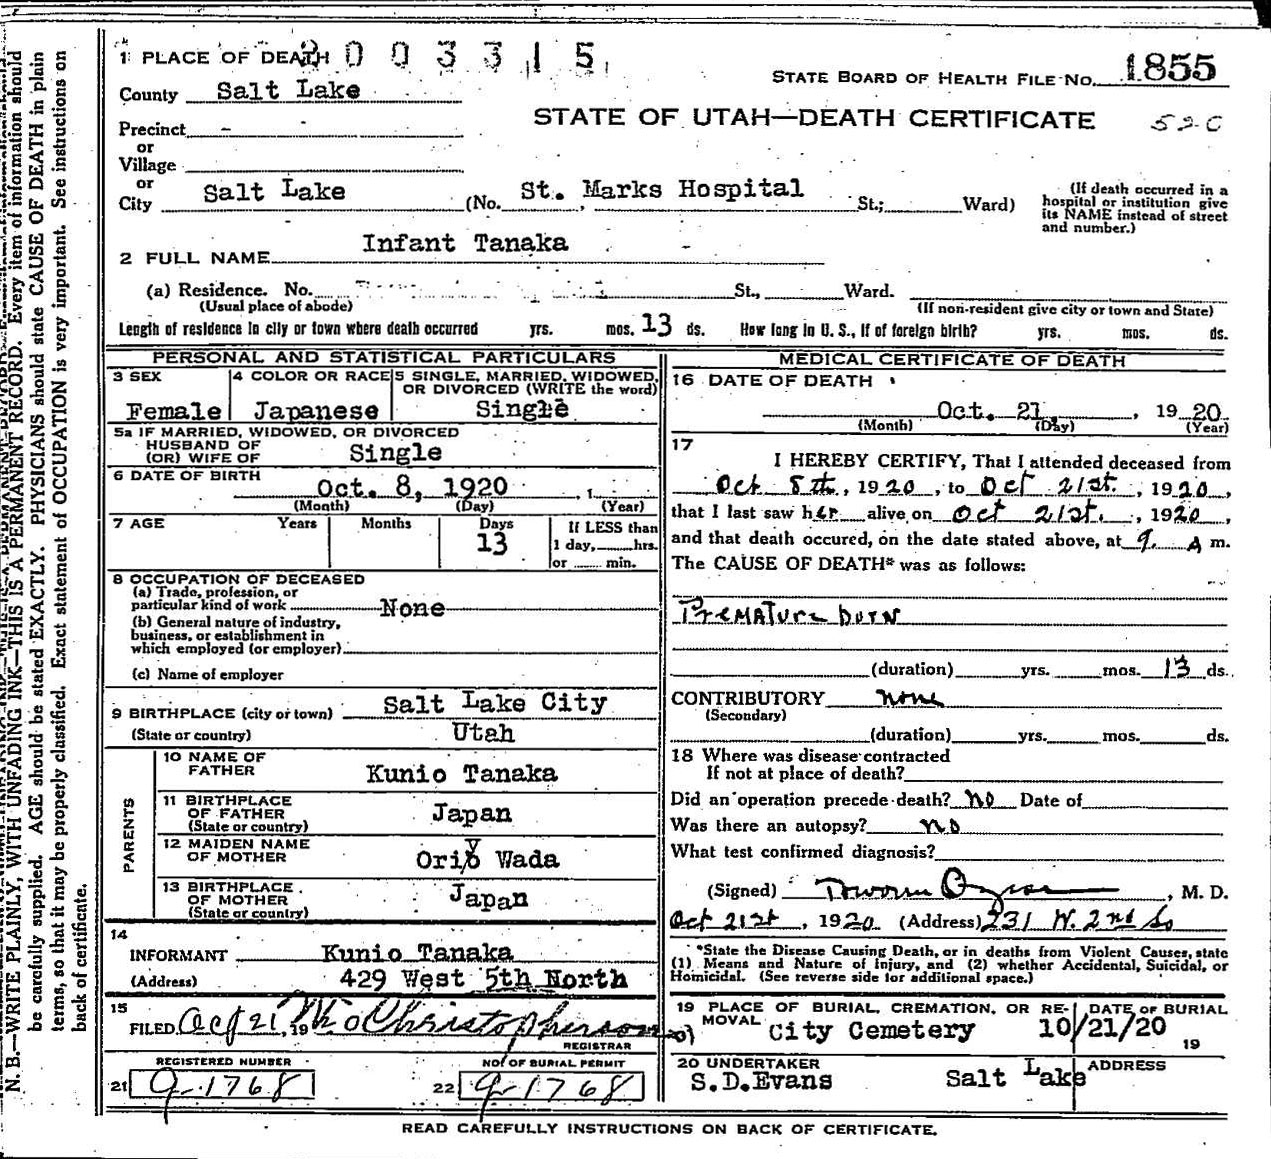 1 PLACE OF DEATH 2003315
STATE BOARD OF HEALTH FILE NO. 1855
County Salt Lake
STATE OF UTAH—DEATH CERTIFICATE 520
Precinct -
or
Village
or
City Salt Lake (No. St. Marks Hospital St.; Ward)
(If death occurred in a hospital or institution give its NAME instead of street and number.)
2 FULL NAME Infant Tanaka
(a) Residence. No. St., Ward.
(Usual place of abode) (If non-resident give city or town and State)
Length of residence in city or town where death occurred yrs. mos. 13 ds. How long in U. S., if of foreign birth? yrs. mos. ds.
PERSONAL AND STATISTICAL PARTICULARS
3 SEX Female
4 COLOR OR RACE Japanese
5 SINGLE, MARRIED, WIDOWED, OR DIVORCED (WRITE the word) Single
5a IF MARRIED, WIDOWED, OR DIVORCED
HUSBAND OF
(OR) WIFE OF Single
6 DATE OF BIRTH Oct. 8, 1920
(Month) (Day) (Year)
7 AGE Years Months Days 13 If LESS than
1 day, hrs.
or min.
8 OCCUPATION OF DECEASED
(a) Trade, profession, or
particular kind of work None
(b) General nature of industry,
business, or establishment in
which employed (or employer)
(c) Name of employer
9 BIRTHPLACE (city or town) Salt Lake City
(State or country) Utah
PARENTS
10 NAME OF FATHER Kunio Tanaka
11 BIRTHPLACE OF FATHER Japan
(State or country)
12 MAIDEN NAME OF MOTHER Oriyo Wada
13 BIRTHPLACE OF MOTHER Japan
(State or country)
14
INFORMANT Kunio Tanaka
(Address) 429 West 5th North
15
FILED Oct 21, 19 Christopherson
REGISTRAR
REGISTERED NUMBER
21 9-1768
NO. OF BURIAL PERMIT
22 9-1768
MEDICAL CERTIFICATE OF DEATH
16 DATE OF DEATH
Oct. 21, , 1920
(Month) (Day) (Year)
17
I HEREBY CERTIFY, That I attended deceased from
Oct 8th, 1920, to Oct 21st., 1920,
that I last saw her alive on Oct 21st., 1920,
and that death occured, on the date stated above, at 9. A m.
The CAUSE OF DEATH* was as follows:
Premature born
(duration) yrs. mos. 13 ds.
CONTRIBUTORY none
(Secondary)
(duration) yrs. mos. ds.
18 Where was disease contracted
If not at place of death?
Did an operation precede death? No Date of
Was there an autopsy? No
What test confirmed diagnosis?
(Signed) , M. D.
Oct 21st, 1920 (Address) 231 W. 2nd So
*State the Disease Causing Death, or in deaths from Violent Causes, state
(1) Means and Nature of Injury, and (2) whether Accidental, Suicidal, or
Homicidal. (See reverse side for additional space.)
19 PLACE OF BURIAL, CREMATION, OR REMOVAL City Cemetery
DATE OF BURIAL 10/21/20 19
20 UNDERTAKER S.D.Evans
ADDRESS Salt Lake
READ CAREFULLY INSTRUCTIONS ON BACK OF CERTIFICATE.
N. B.—WRITE PLAINLY, WITH UNFADING INK—THIS IS A PERMANENT RECORD. Every item of information should
be carefully supplied. AGE should be stated EXACTLY. PHYSICIANS should state CAUSE OF DEATH in plain
terms, so that it may be properly classified. Exact statement of OCCUPATION is very important. See instructions on
back of certificate.